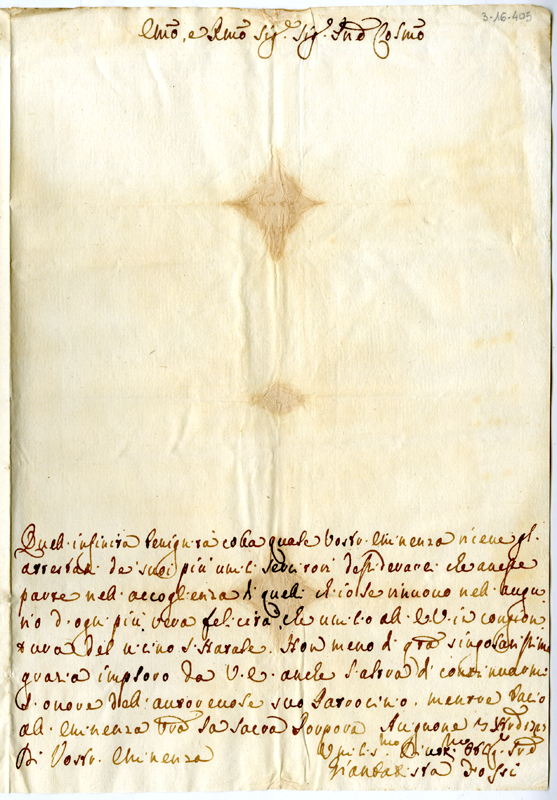 3-16-405
Em͂o, e Rm͂o Sig.r Sig.r Pnd͂ Colm͂o
Quell'infinita benignità colla quale Vostr. Eminenza riceve gl'
attestati de suoi più umili servitori desiderarei che avesse
parte nell'accoglienza di quelli ch'io le rinnuovo nell'augu-
rio d'ogni più vera felicità che umilio all'E.V. in congion-
tura del vicino S. Natale. Non meno di gr͂a singolarissima
grazia imploro da V.E. anche l'altra di continuarmi
l'onore dell'autorevole suo Patrocino, mentre bacio
all'Eminenza Vr͂a la Sacra Porpora Avignone
Di Vostr. Eminenza
Umilis.mo Divot.mo Obblig.